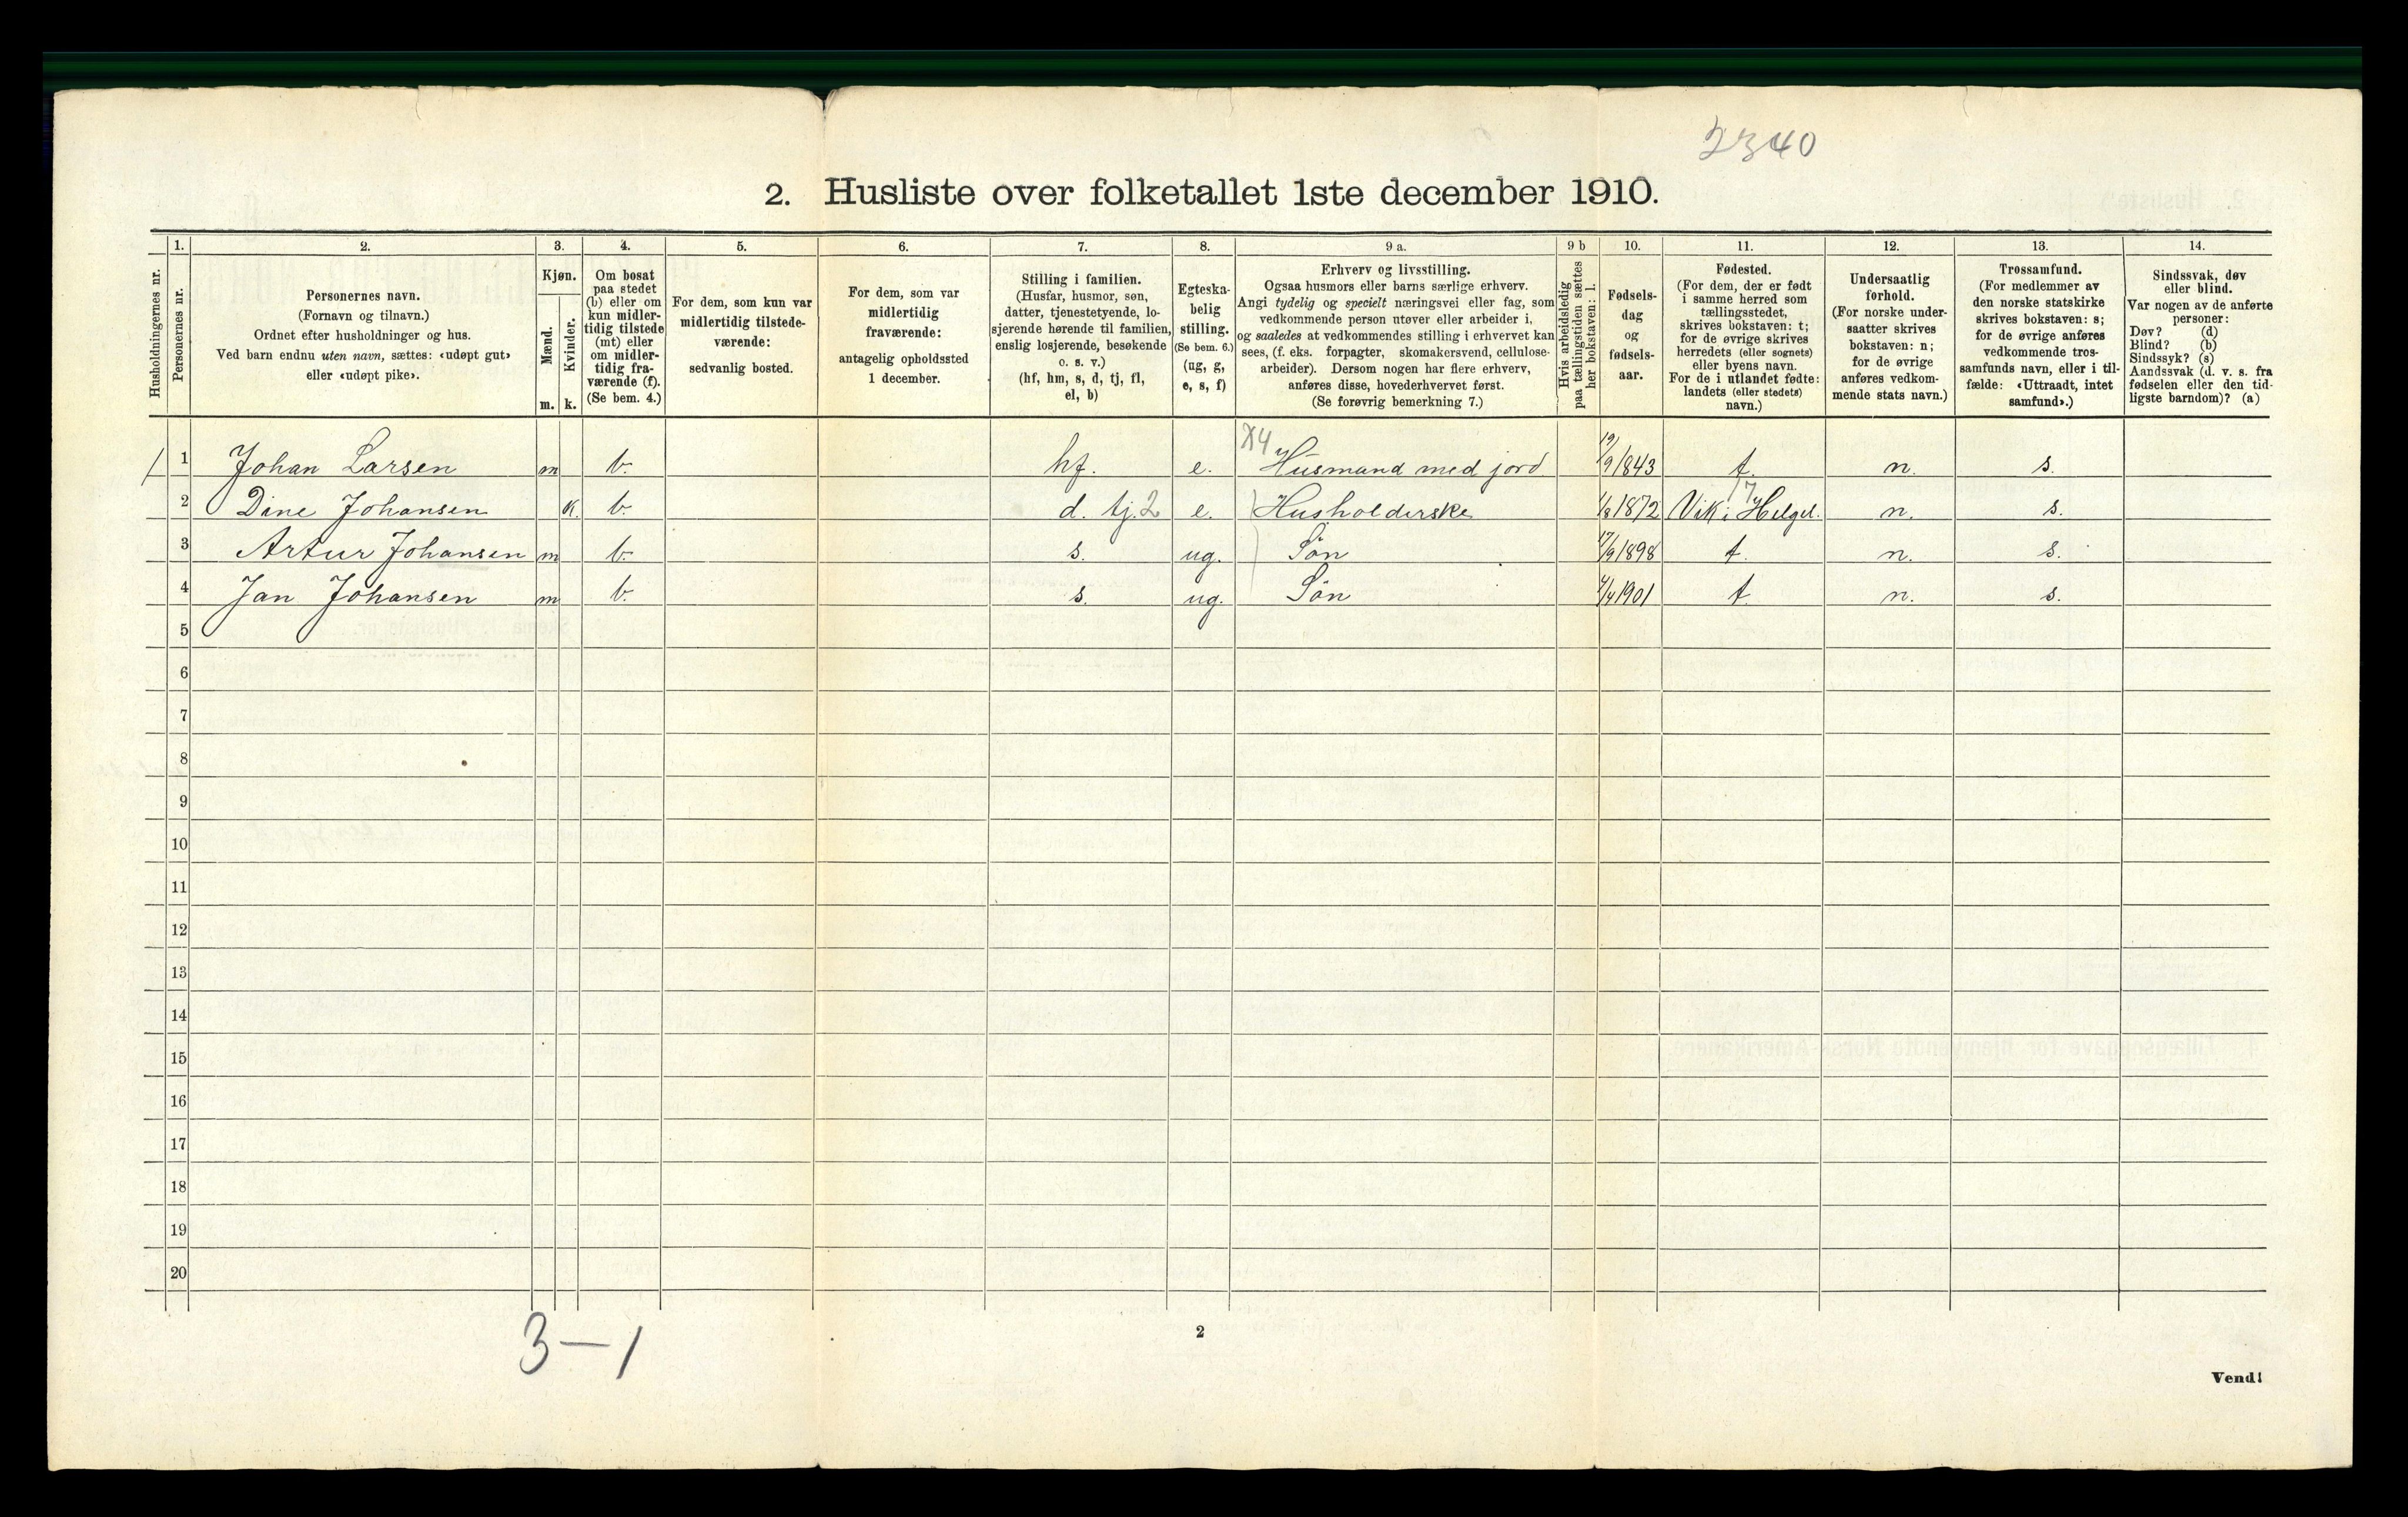 2340
2. Husliste over folketallet 1ste december 1910.
Husholdningernes nr.
1. Personernes nr.
2. Personernes navn. (Fornavn og tilnavn.) Ordnet efter husholdninger og hus. Ved barn endnu uten navn, sættes: «udøpt gut» eller «udøpt pike».
3. Kjøn. Mænd. m. Kvinder. k.
4. Om bosat paa stedet (b) eller om kun midlertidig tilstede (mt) eller om midlertidig fraværende (f). (Se bem. 4.)
5. For dem, som kun var midlertidig tilstedeværende: sedvanlig bosted.
6. For dem, som var midlertidig fraværende: antagelig opholdssted 1 december.
7. Stilling i familien. (Husfar, husmor, søn, datter, tjenestetyende, losjerende hørende til familien, enslig losjerende, besøkende o. s. v.) (hf, hm, s, d, tj, fl, el, b)
8. Egteskabelig stilling. (Se bem. 6.) (ug, g, e, s, f)
9 a. Erhverv og livsstilling. Ogsaa husmors eller barns særlige erhverv. Angi tydelig og specielt næringsvei eller fag, som vedkommende person utøver eller arbeider i, og saaledes at vedkommendes stilling i erhvervet kan sees, (f. eks. forpagter, skomakersvend, cellulosearbeider). Dersom nogen har flere erhverv, anføres disse, hovederhvervet først. (Se forøvrig bemerkning 7.)
9 b Hvis arbeidsledig paa tællingstiden sættes her bokstaven: l.
10. Fødselsdag og fødselsaar.
11. Fødested. (For dem, der er født i samme herred som tællingsstedet, skrives bokstaven: t; for de øvrige skrives herredets (eller sognets) eller byens navn. For de i utlandet fødte: landets (eller stedets) navn.)
12. Undersaatlig forhold. (For norske undersaatter skrives bokstaven: n; for de øvrige anføres vedkommende stats navn.)
13. Trossamfund. (For medlemmer av den norske statskirke skrives bokstaven: s; for de øvrige anføres vedkommende trossamfunds navn, eller i tilfælde: «Uttraadt, intet samfund».)
14. Sindssvak, døv eller blind. Var nogen av de anførte personer: Døv? (d) Blind? (b) Sindssyk? (s) Aandssvak (d. v. s. fra fødselen eller den tidligste barndom)? (a)
X4
1 1 Johan Larsen m b. hf. e. Husmand med jord 19/9 1843 t. n. s.
17
2 Dine Johansen k. b. d. tj. 2 e. Husholderske 1/8 1872 Vik i Helgel. n. s.
3 Artur Johansen m b. s. ug. Sön 17/9 1898 t. n. s.
4 Jan Johansen m b. s. ug. Sön 4/4 1901 t. n. s.
5
6
7
8
9
10
11
12
13
14
15
16
17
18
19
20
3—1
2
Vend!